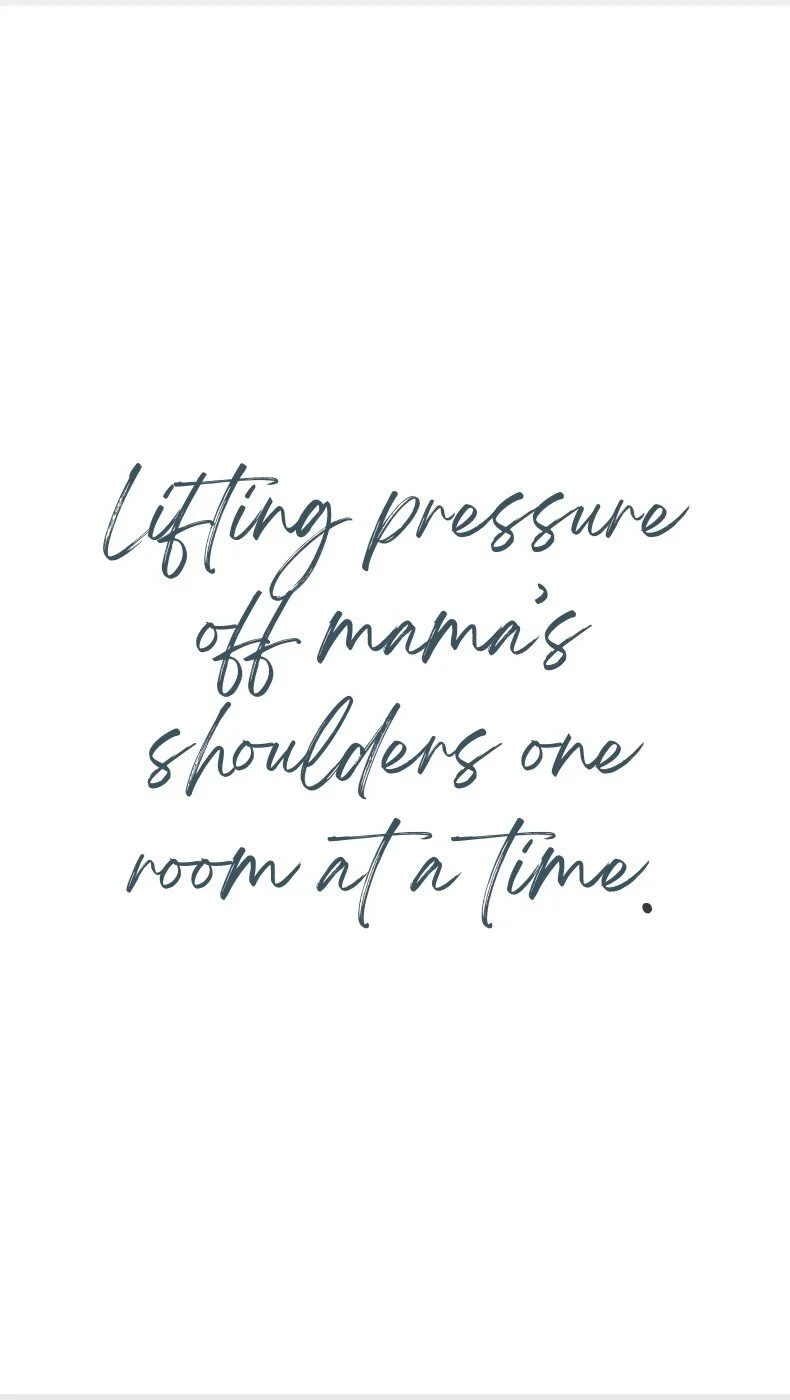 Lifting pressure
off mama's
shoulders one
room at a time.